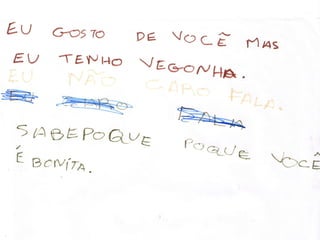 EU GOSTO DE VOCÊ MAS
EU TENHO VEGONHA.
EU NÃO CARO FALA.
SABEPOQUE POQUE VOCÊ
É BONITA.